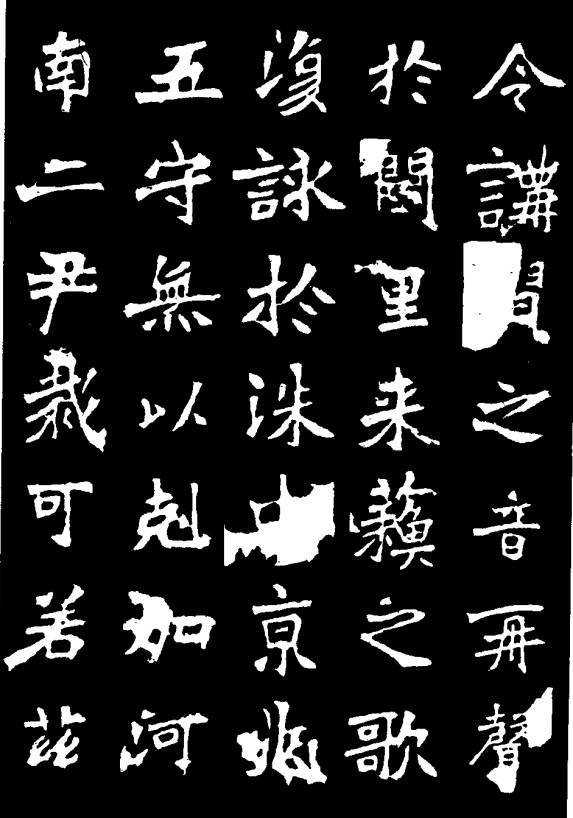 令講習之音再聲
於闕里来蘇之歌
復詠於洙中京兆
五守無以剋加河
南二尹裁可若茲